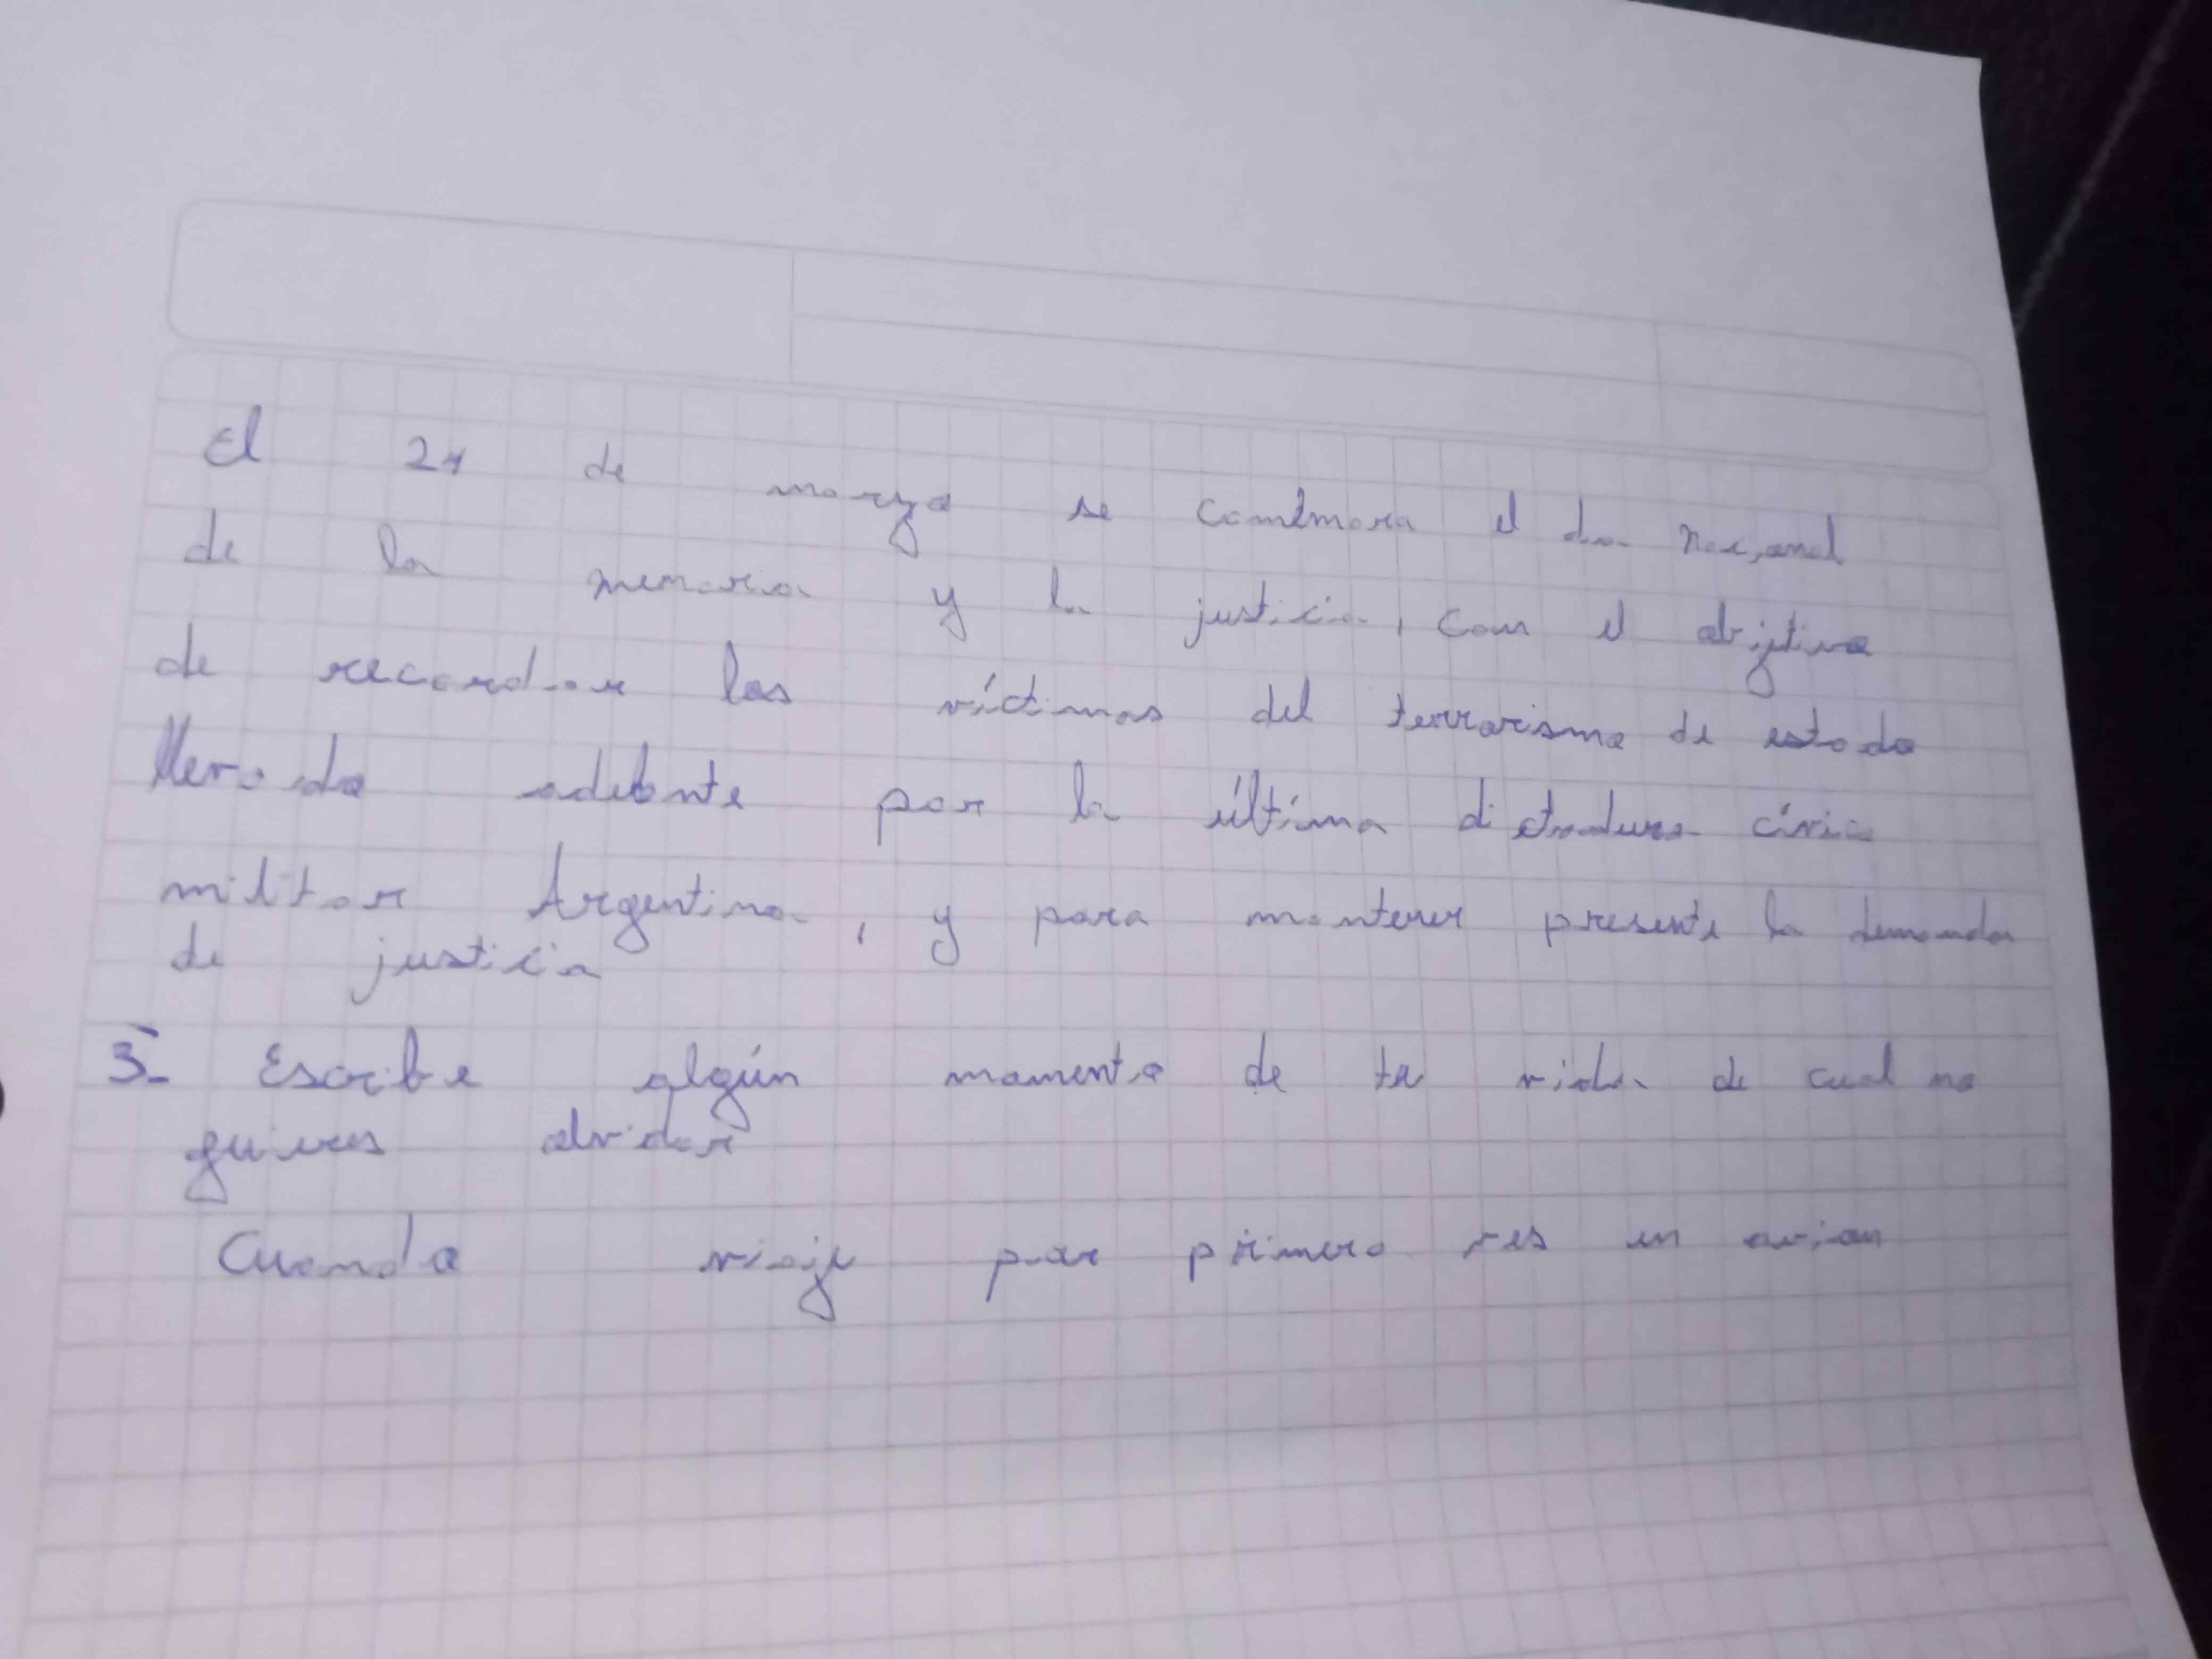 El 24 de marzo se comemora el dia nacional
de la memoria y la justicia, con el objetivo
de recordar las víctimas del terrorismo de estado
llevado adelante por la última dictadura cívic
militar Argentina, y para mantener presente la demanda
de justicia
3- Escribe algún momento de tu vida de cual no
quires olvidar
Cuando viaje por primera ves en avion